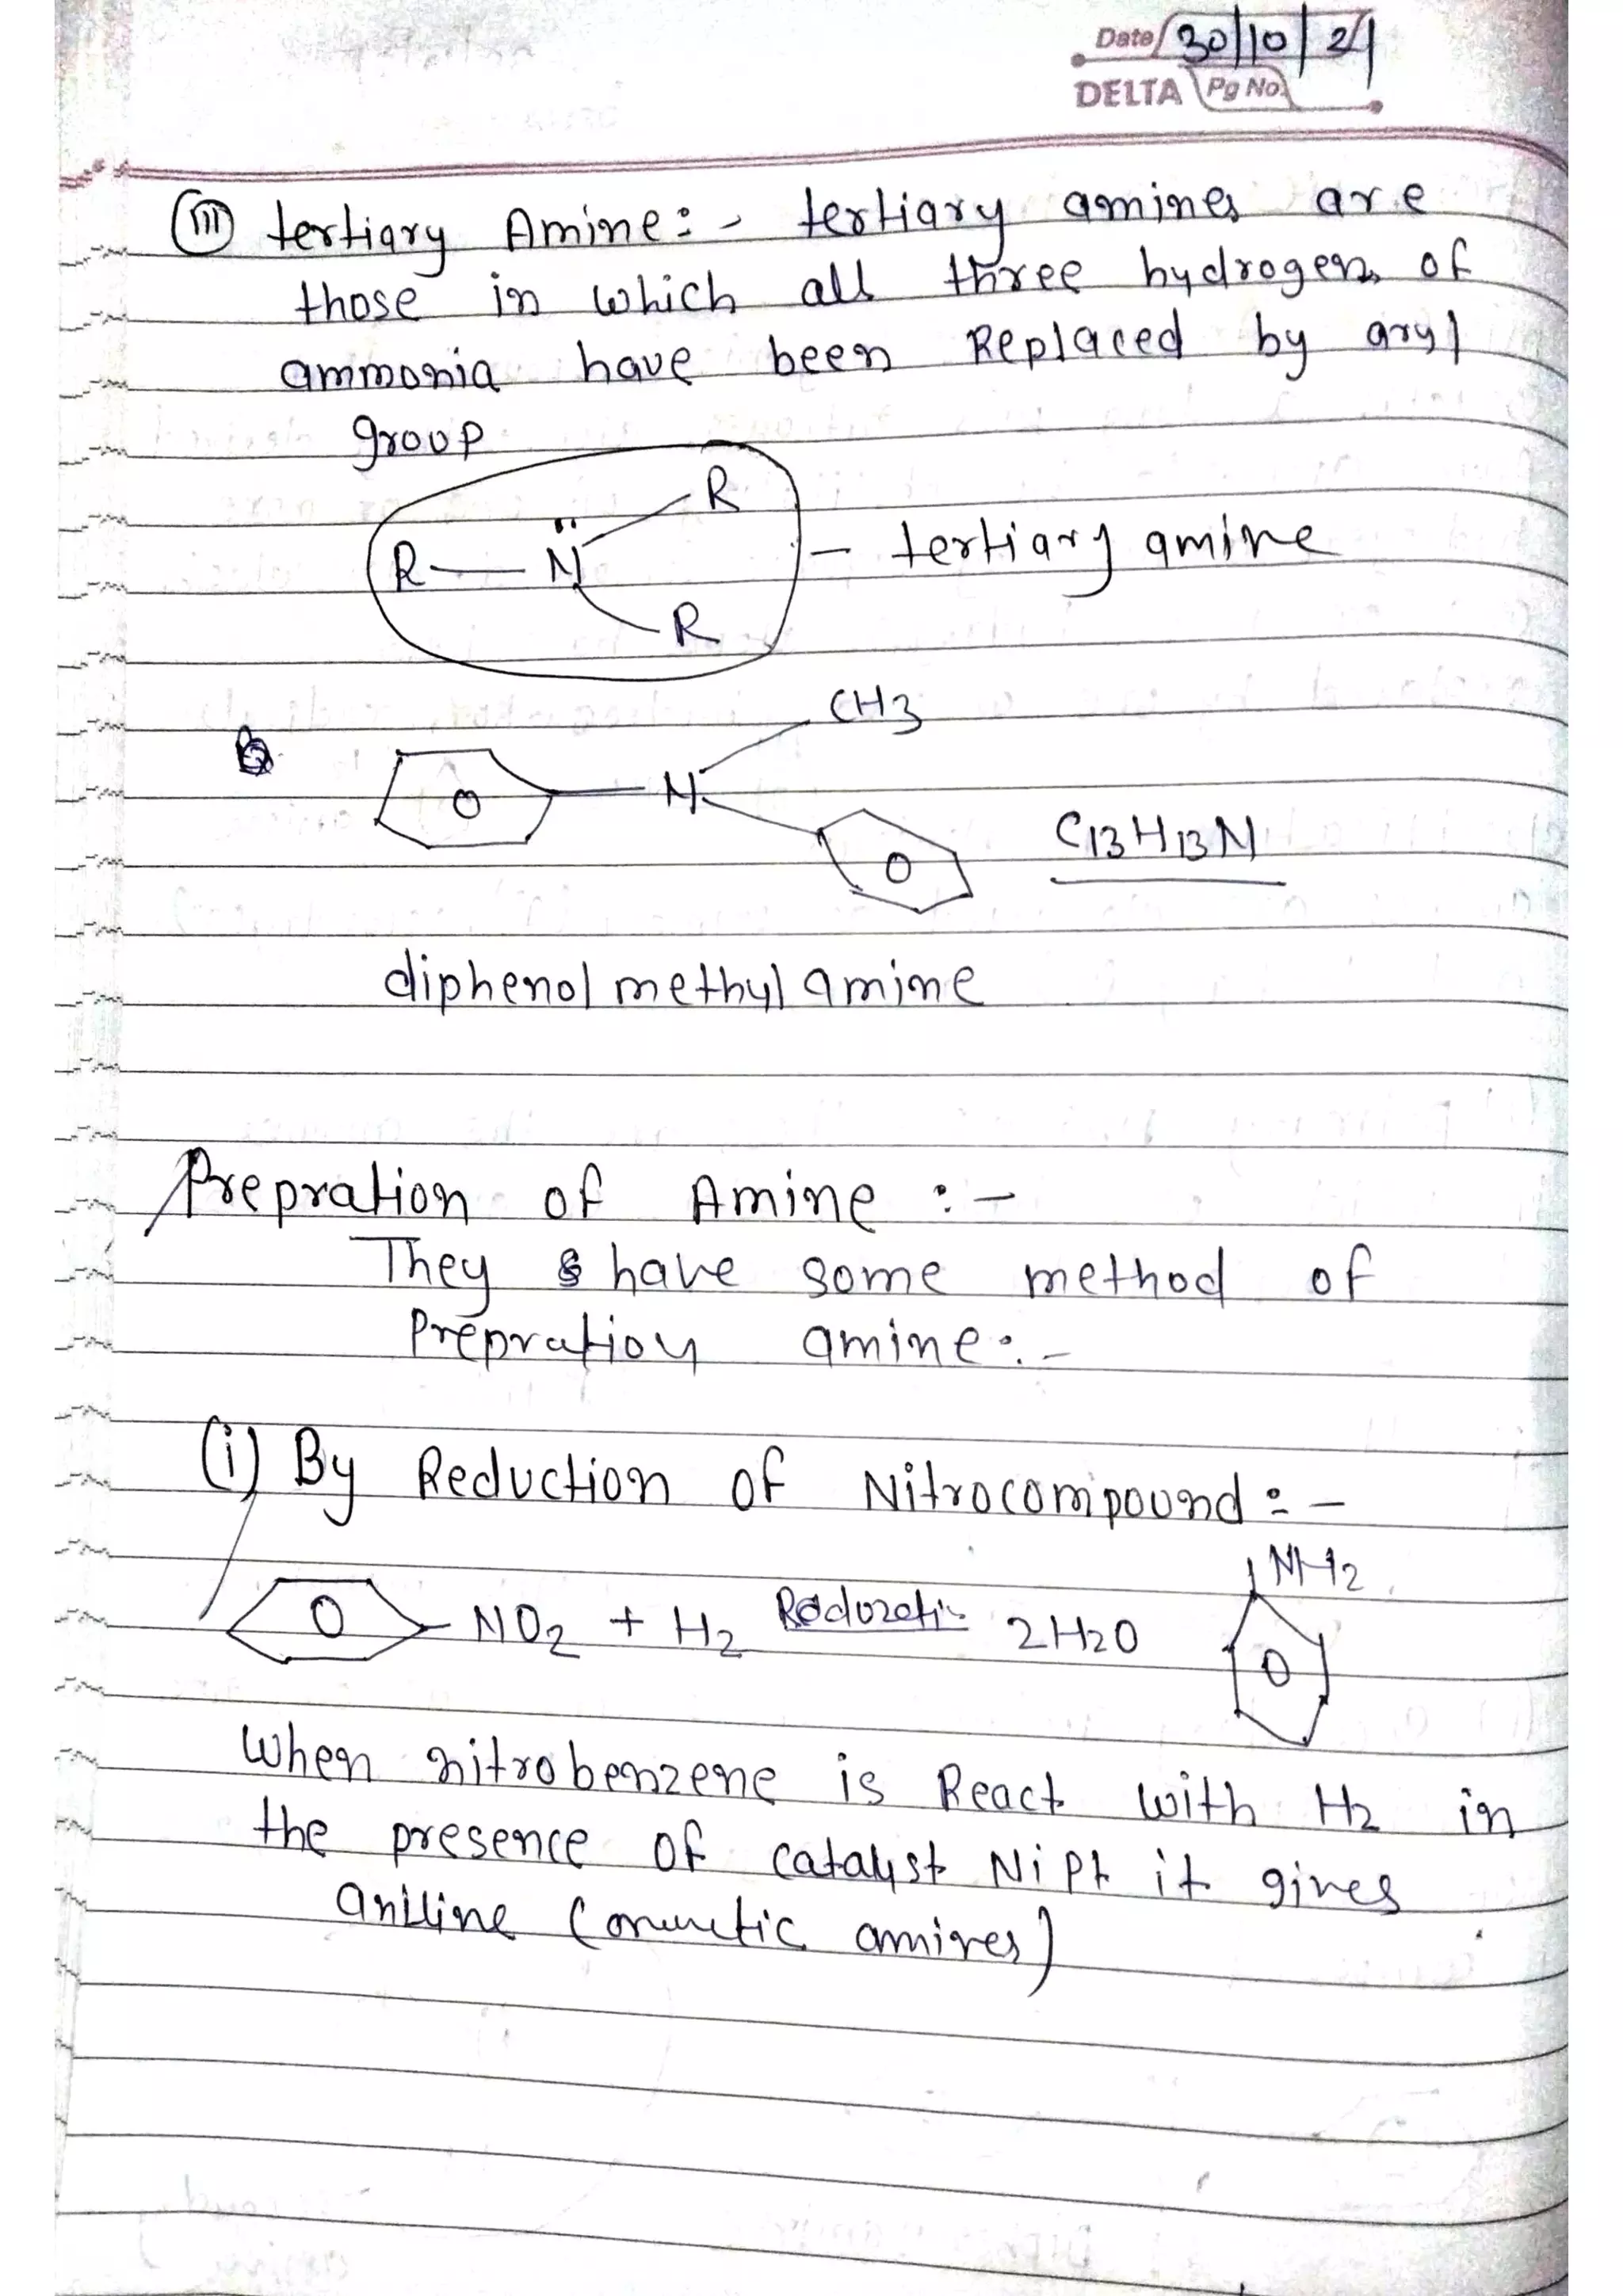 Date 30/10/21
DELTA Pg No.
(iii) tertiary Amine :- tertiary amines are
those in which all three hydrogens of
ammonia have been Replaced by aryl
group
R
R — N̈ - tertiary amine
R
CH3
N
C13H13N
diphenol methyl amine
Prepration of Amine :-
They have some method of
Prepration amine :-
(i) By Reduction of Nitrocompound :-
NH2
NO2 + H2 2H2O
When nitrobenzene is React with H2 in
the presence of catalyst Ni Pt it gives
aniline ( amines)